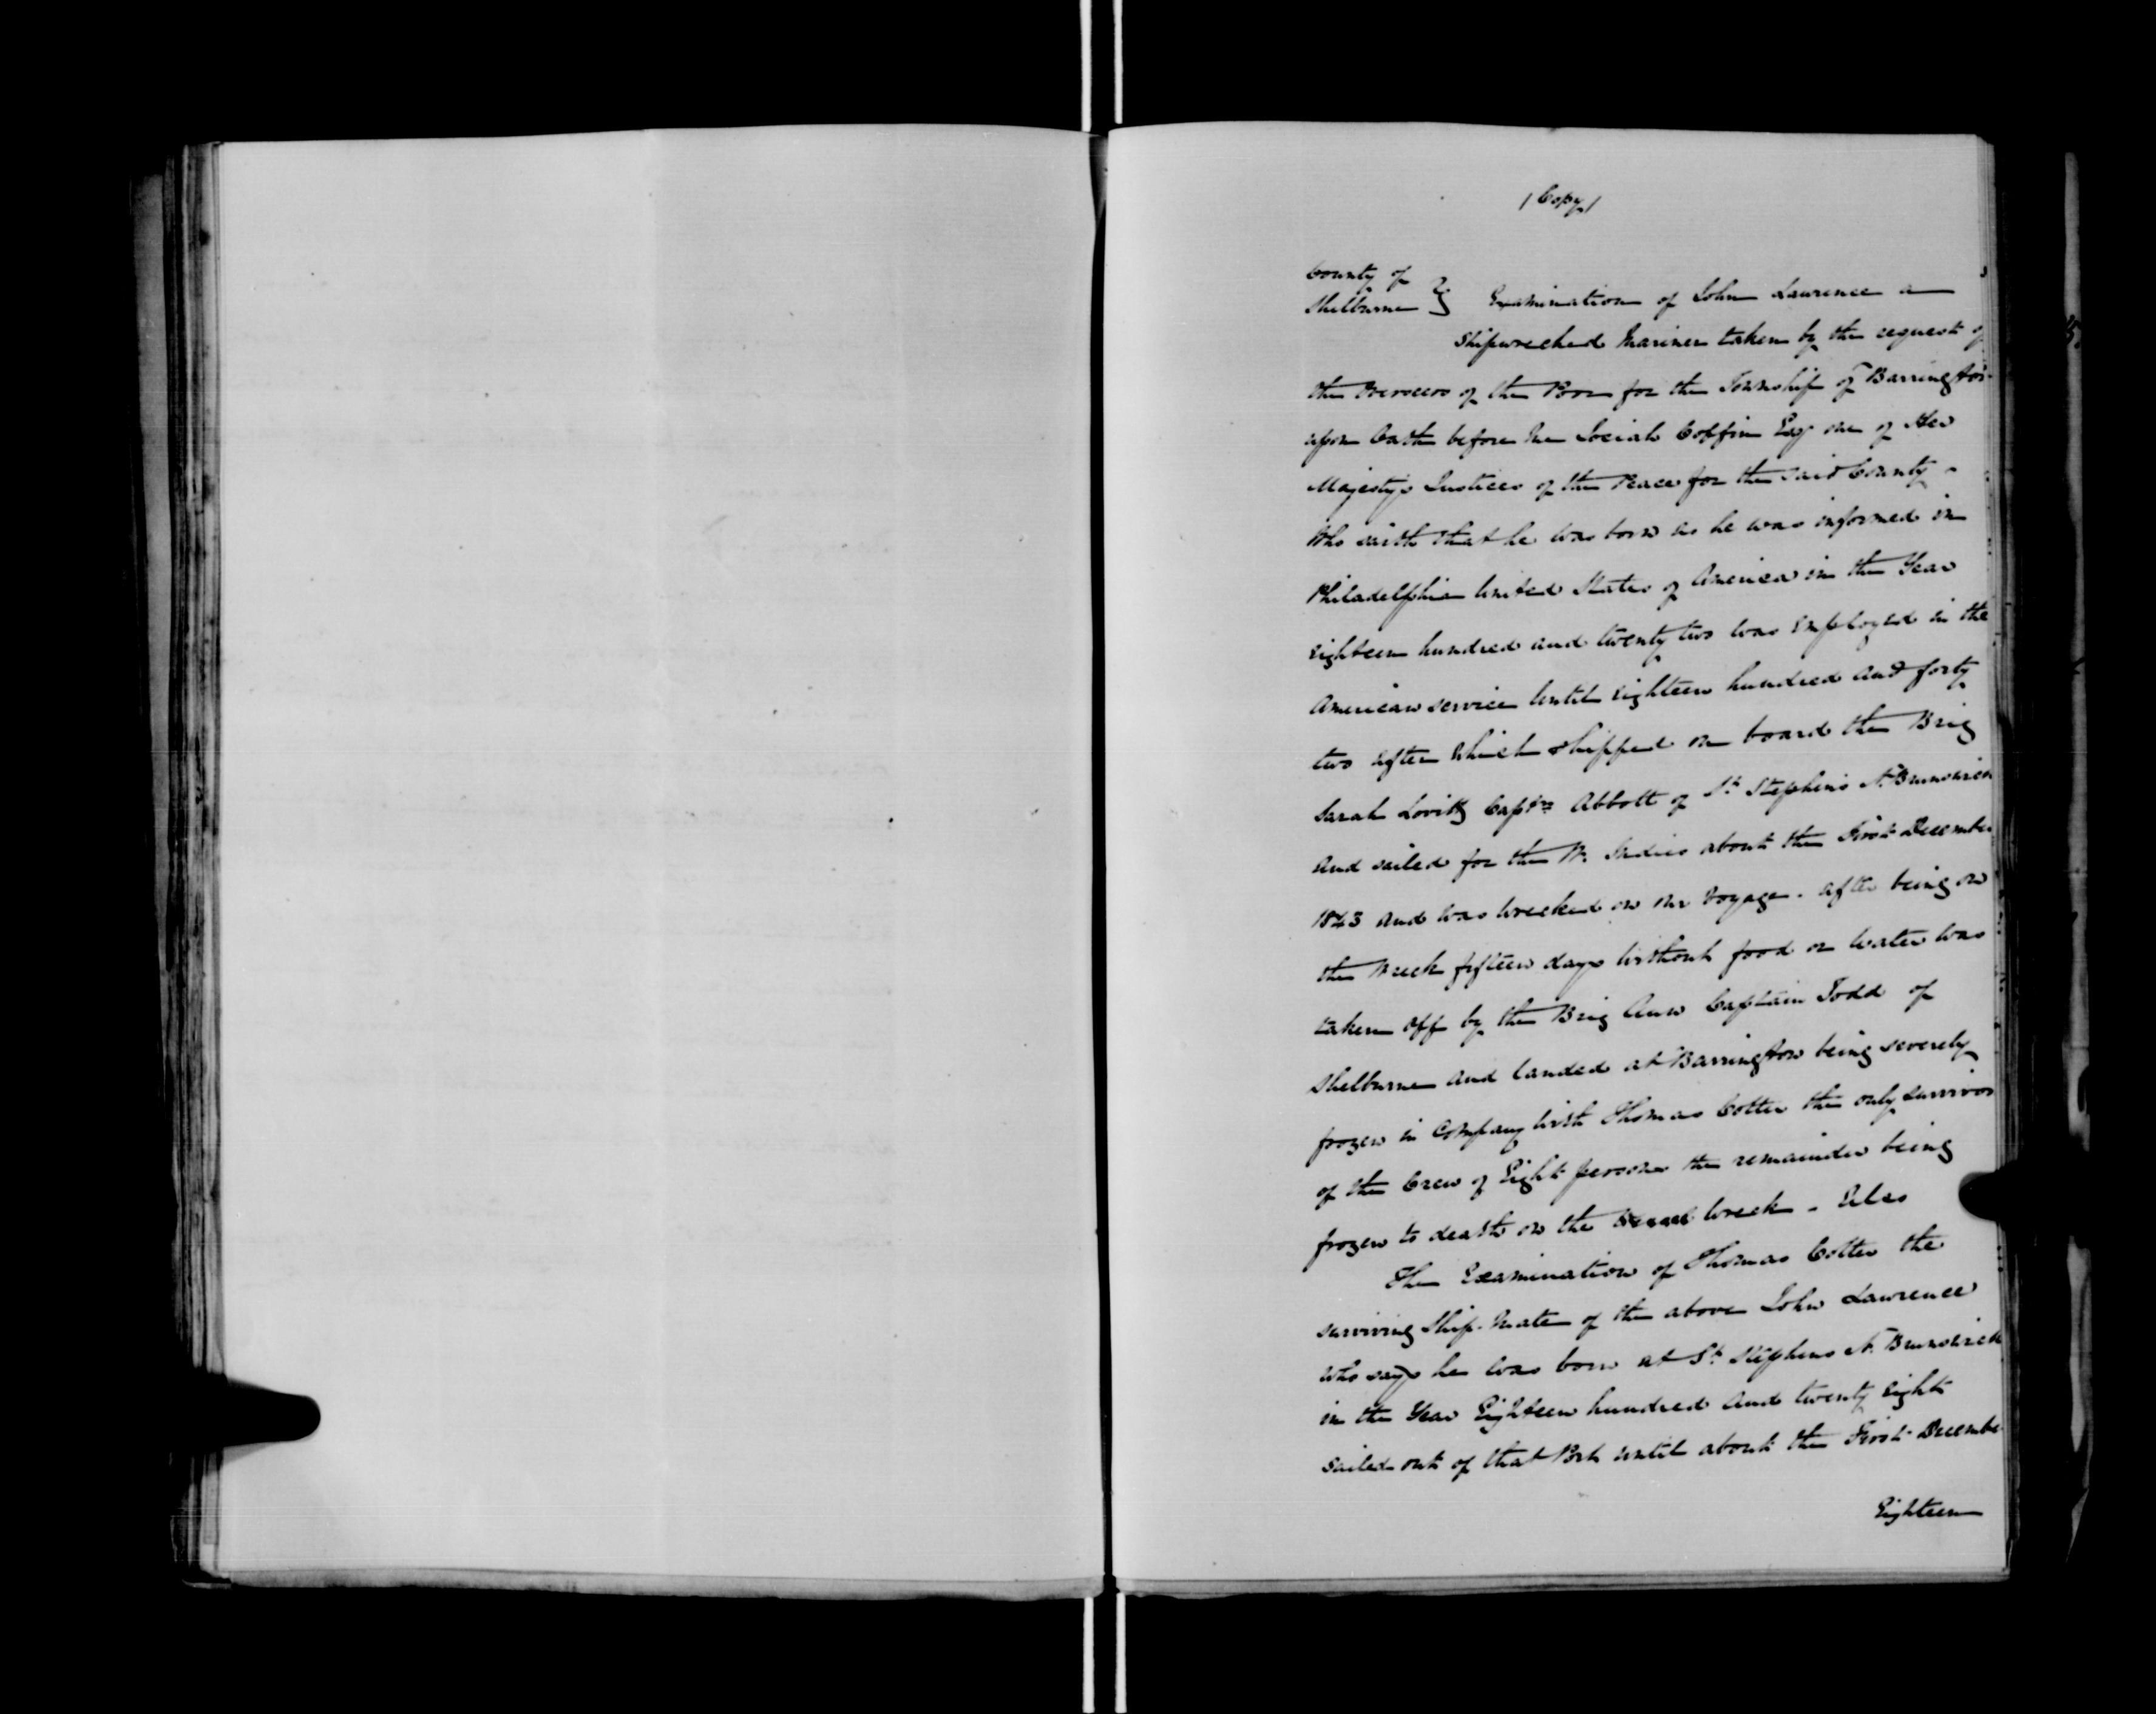 /Copy/
County of
Shelburne } Examination of John Lawrence a
Shipwrecked Mariner taken by the request of
the Overseers of the Poor for the Township of Barrington
upon Oath before Me Josiah Coffin Esq one of Her
Majestys Justices of the Peace for the said County -
Who saith that he was born as he was informed in
Philadelphia United States of America in the Year
eighteen hundred and twenty two was employed in the
American service until eighteen hundred and forty
two after which shipped on board the Brig
Sarah Captn Abbott of St Stephens N. Brunswick
and sailed for the W. Indies about the First December
1843 and was wrecked on our Voyage - after being on
the Wreck fifteen days without food or water was
taken off by the Brig Ann Captain Todd of
Shelburne and landed at Barrington being severely
frozen in Company with Thomas Cotter the only survivor
of the Crew of Eight persons the remainder being
frozen to death on the wreck - Also
The Examination of Thomas Cotter the
surviving Ship-Mate of the above John Lawrence
who says he was born at St Stephens N. Brunswick
in the Year Eighteen hundred and twenty eight
sailed out of that Port until about the First December
Eighteen